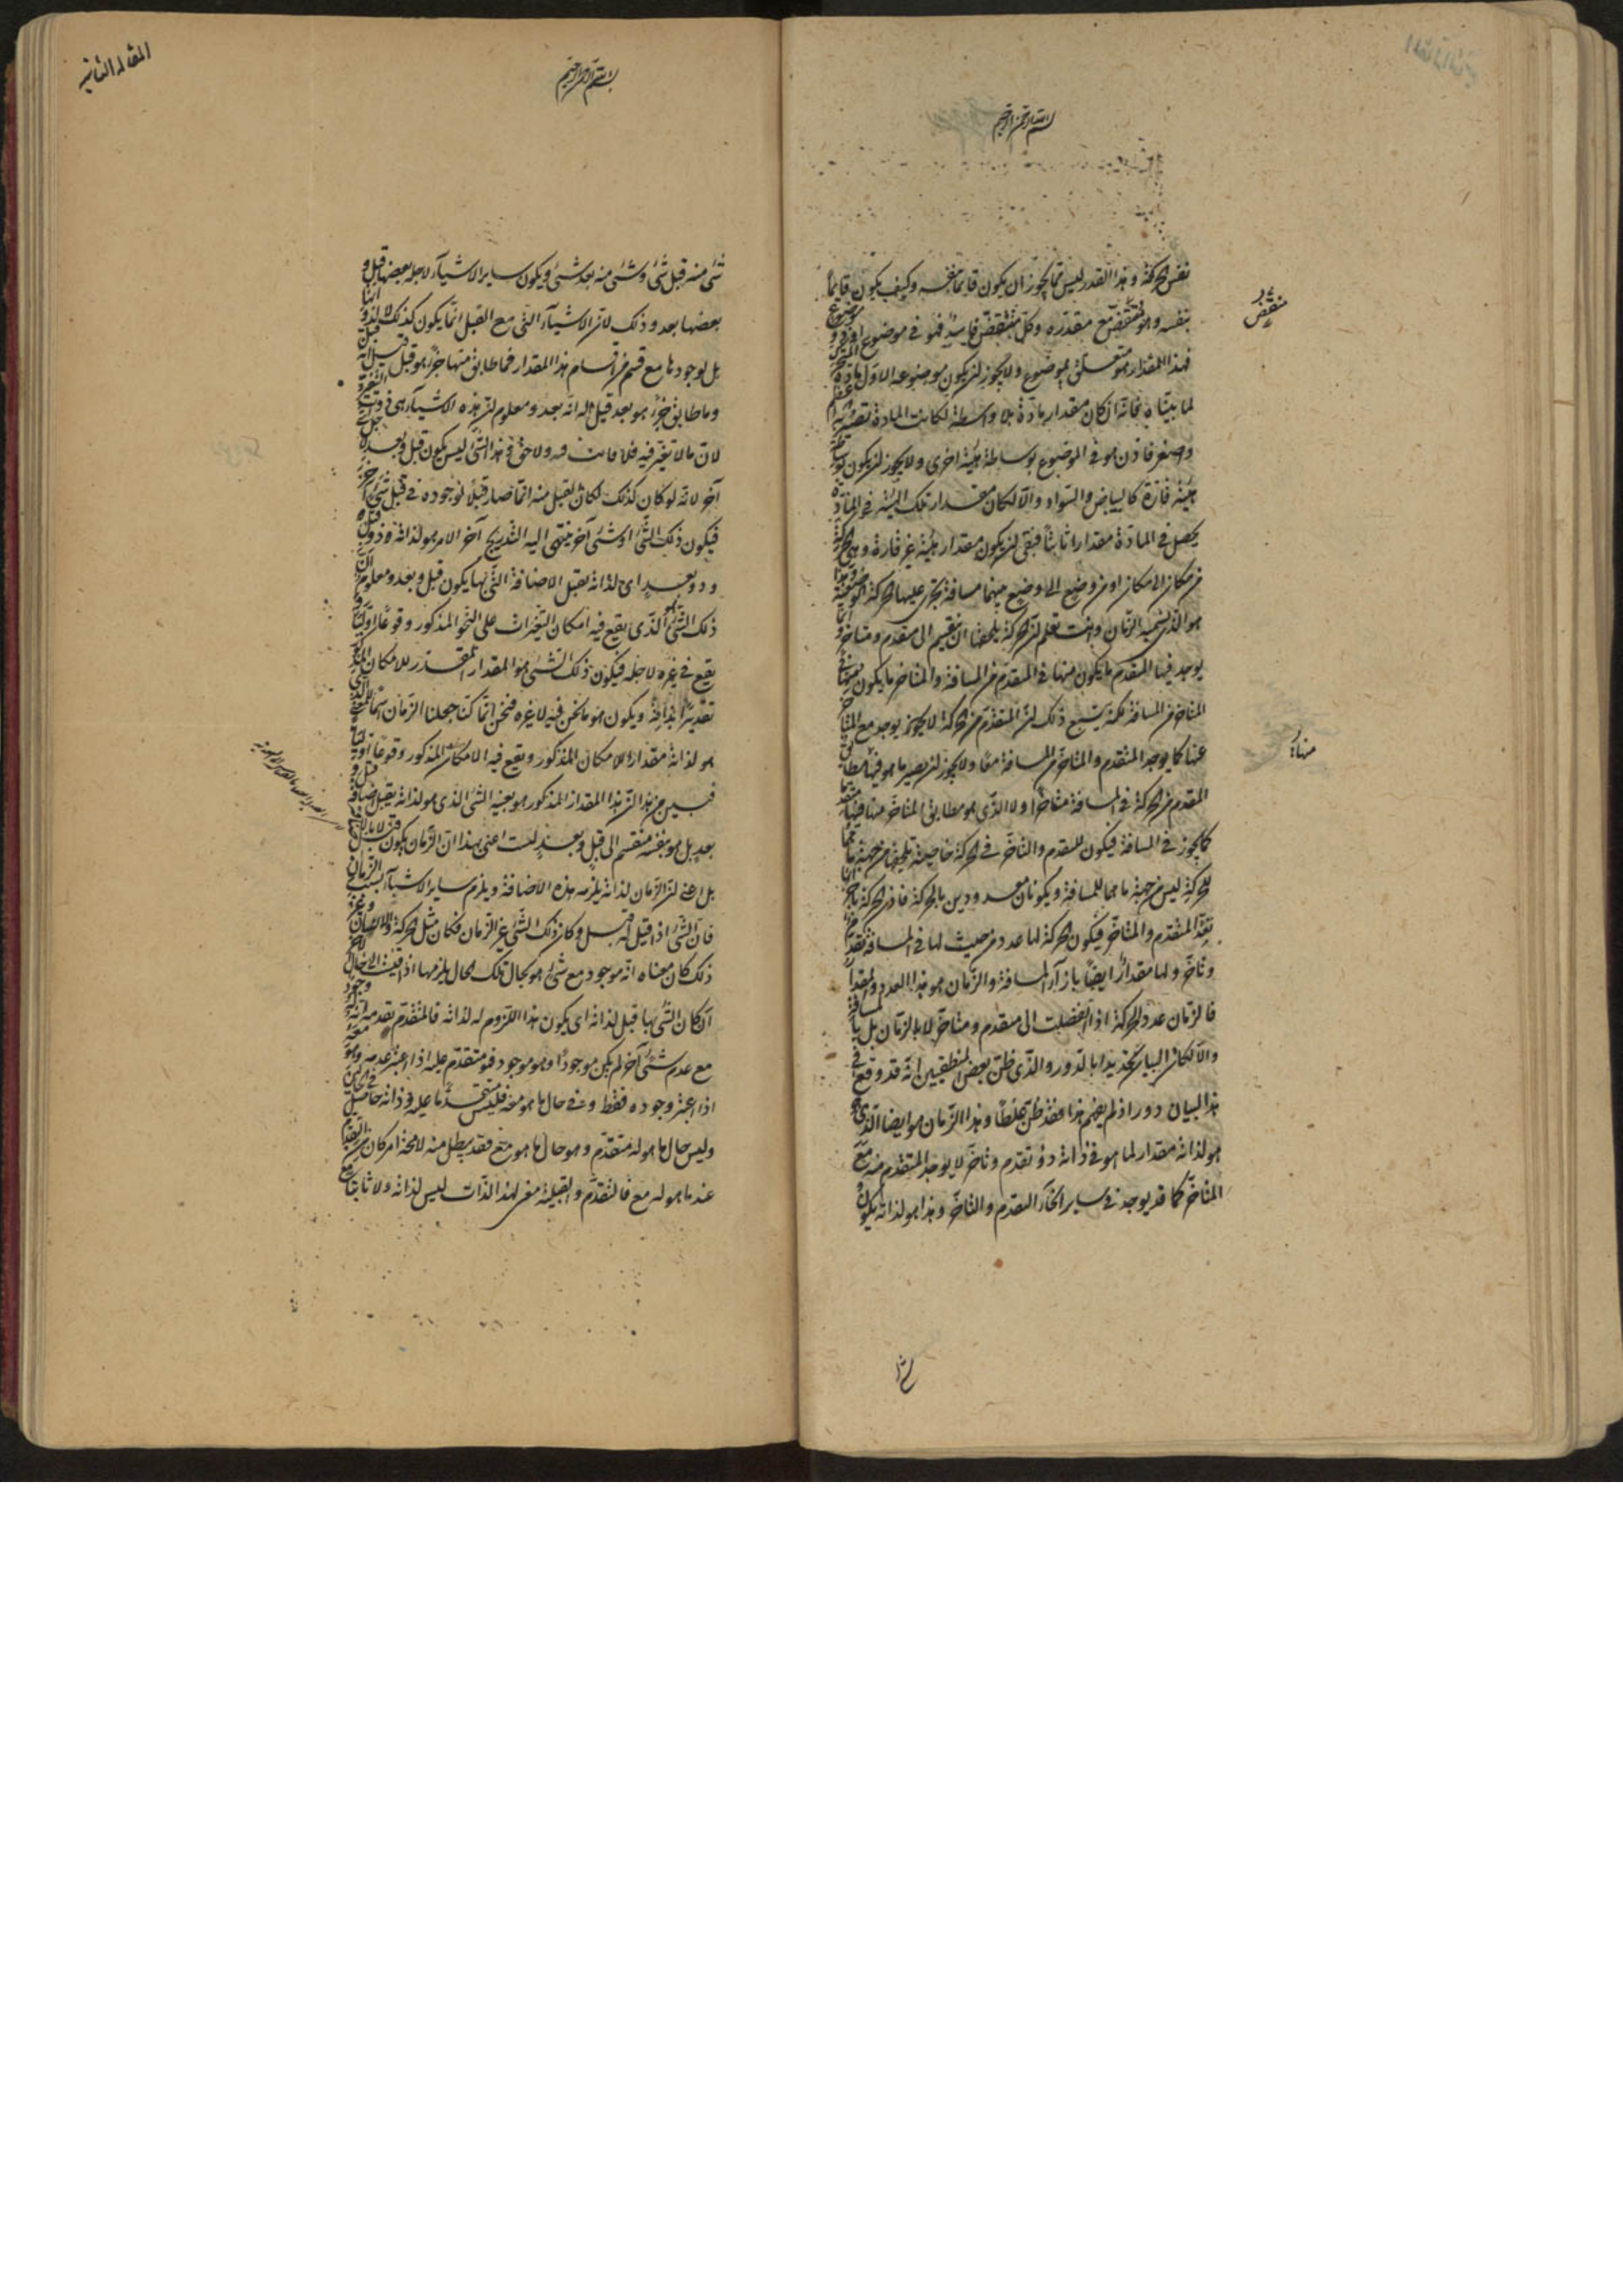 بسم الله الرحمن الرحيم
نفس الحركة وهذا القدر ليس مما يجوز ان يكون قايما بنفسه وكيف يكون قايماً
بنفسه وهو منقض مع مقدره وكل منقض فاسد فهو في موضوع او ذو موضوع
فهذا المقدار هو متعلق بموضوع ولا يجوز ان يكون موضوعه الاول مادة المتحرك
لما بيناه فانه ان كان مقدار مادة بلا واسطة لكانت المادة تصير به اعظم
واصغر فاذن هو في الموضوع بوساطة هيئة اخرى ولا يجوز ان يكون بوساطة
هيئة قارة كالبياض والسواد والا لكان مقدار تلك الهيئة في المادة
يحصل في المادة مقدارا ثابتاً فبقى ان يكون مقدار هيئة غير قارة وهى الحركة
من مكان الى مكان او من وضع الى وضع بينهما مسافة تجرى عليها الحركة الوضعية وهذا
هو الذى نسميه الزمان وانت تعلم ان الحركة يلحقها ان تنقسم الى متقدم ومتاخر وانما
يوجد فيها المتقدم ما يكون منها في المتقدم من المسافة والمتاخر ما يكون منها في
المتاخر من المسافة لكنه يتبع ذلك ان المتقدم من الحركة لا يجوز يوجد مع المتاخر
منها كما يوجد المتقدم والمتاخر في المسافة معاً ولا يجوز ان يصير ما هو فيها مطابق
المتقدم من الحركة في المسافة متاخراً ولا الذى هو مطابق المتاخر منها فيها متقدما
كما يجوز في المسافة فيكون للتقدم والتاخر في الحركة خاصية تلحقها من جهة ما هما
للحركة ليس من جهة ما هما للمسافة ويكونان معدودين بالحركة فان الحركة باجزائها
تعد المتقدم والمتاخر فيكون الحركة لها عدد من حيث لها في المسافة تقدم
وتاخر ولها مقدارٌ ايضاً بازآء المسافة والزمان هو هذا العدد والمقدار
فالزمان عدد الحركة اذا انفصلت الى متقدم ومتاخر لا بالزمان بل بالمسافة
والا لكان البيان تحديدا بالدور والذى ظن بعض المنطقيين انه قد وقع في
هذا البيان دور اذ لم يفهم هذا فقد ظن غلطاً وهذا الزمان هو ايضا الذى هو
هو لذاته مقدار لما هو في ذاته ذو تقدم وتاخر لا يوجد المتقدم منه مع
المتاخر كما قد يوجد في ساير انحآء التقدم والتاخر وهذا هو لذاته يكون
منقض
منها
المقالة الثانية
بسم الله الرحمن الرحيم
شئ منه قبل شئ وشئ منه بعد شئ ويكون ساير الاشيآء لاجله بعضها قبل و
بعضها بعد وذلك لان الاشيآء التى مع القبل انما يكون كذلك لا لذواتها
بل لوجودها مع قسم من اقسام هذا المقدار فما طابق منها جزءً هو قبل قيل له قبل
وما طابق جزءً هو بعد قيل له انه بعد ومعلوم ان هذه الاشيآء هى ذوات التغير
لان ما لا تغير فيه فلا فائت فيه ولا لاحق وهذا الشئ ليس يكون قبل وبعد لاجل شئ
آخر لانه لو كان كذلك لكان القبل منه انما صار قبلاً لوجوده في قبل شئ آخر
فيكون ذلك الشئ او شئ آخر ينتهى اليه التدريج آخر الامر هو لذاته ذو قبل
وذو بعد اى لذاته يقبل الاضافة التى بها يكون قبل وبعد ومعلوم ان
ذلك الشئ هو الذى يقع فيه امكان التغيرات على النحو المذكور وقوعاً اولياً و
يقع في غيره لاجله فيكون ذلك الشئ هو المقدار المقدر للامكان المذكور
تقديرا بذاته ويكون هو ما نحن فيه لا غيره فنحن انما كنا جعلنا الزمان اسماً للمعنى الذى
هو لذاته مقدار للامكان المذكور ويقع فيه الامكان المذكور وقوعاً اولياً
فبيّن من هذا ان هذا المقدار المذكور هو بعينه الشئ الذى هو لذاته يقبل اضافة قبل و
بعد بل هو بنفسه منقسم الى قبل وبعد لست اعنى بهذا ان الزمان يكون قبل لا بالاضافة
بل اعنى ان الزمان لذاته يلزمه هذه الاضافة ويلزم ساير الاشيآء بسبب الزمان
فان الشئ اذا قيل له قبل وكان ذلك الشئ غير الزمان فكان مثل الحركة والانسان وغير
ذلك كان معناه انه موجود مع شئ هو بحال تلك الحال يلزمها اذا قيست الى حال الآخر
ان كان الشئ بها قبل لذاته اى يكون هذا اللزوم له لذاته فالمتقدم تقدمه انه له وجود
مع عدم شئ آخر لم يكن موجوداً وهو موجود فهو متقدم عليه اذا اعتبر عدمه وهو معه
اذا اعتبر وجوده فقط وفي حال ما هو معه فليس متقدما عليه وذاته حاصلة في الحالين
وليس حال ما هو له متقدم وهو حال ما هو مع فقد بطل منه لا محالة امر كان له من التقدم
عند ما هو له مع فالتقدم والقبلية معنى لهذا الذات ليس لذاته ولا ثابتا مع